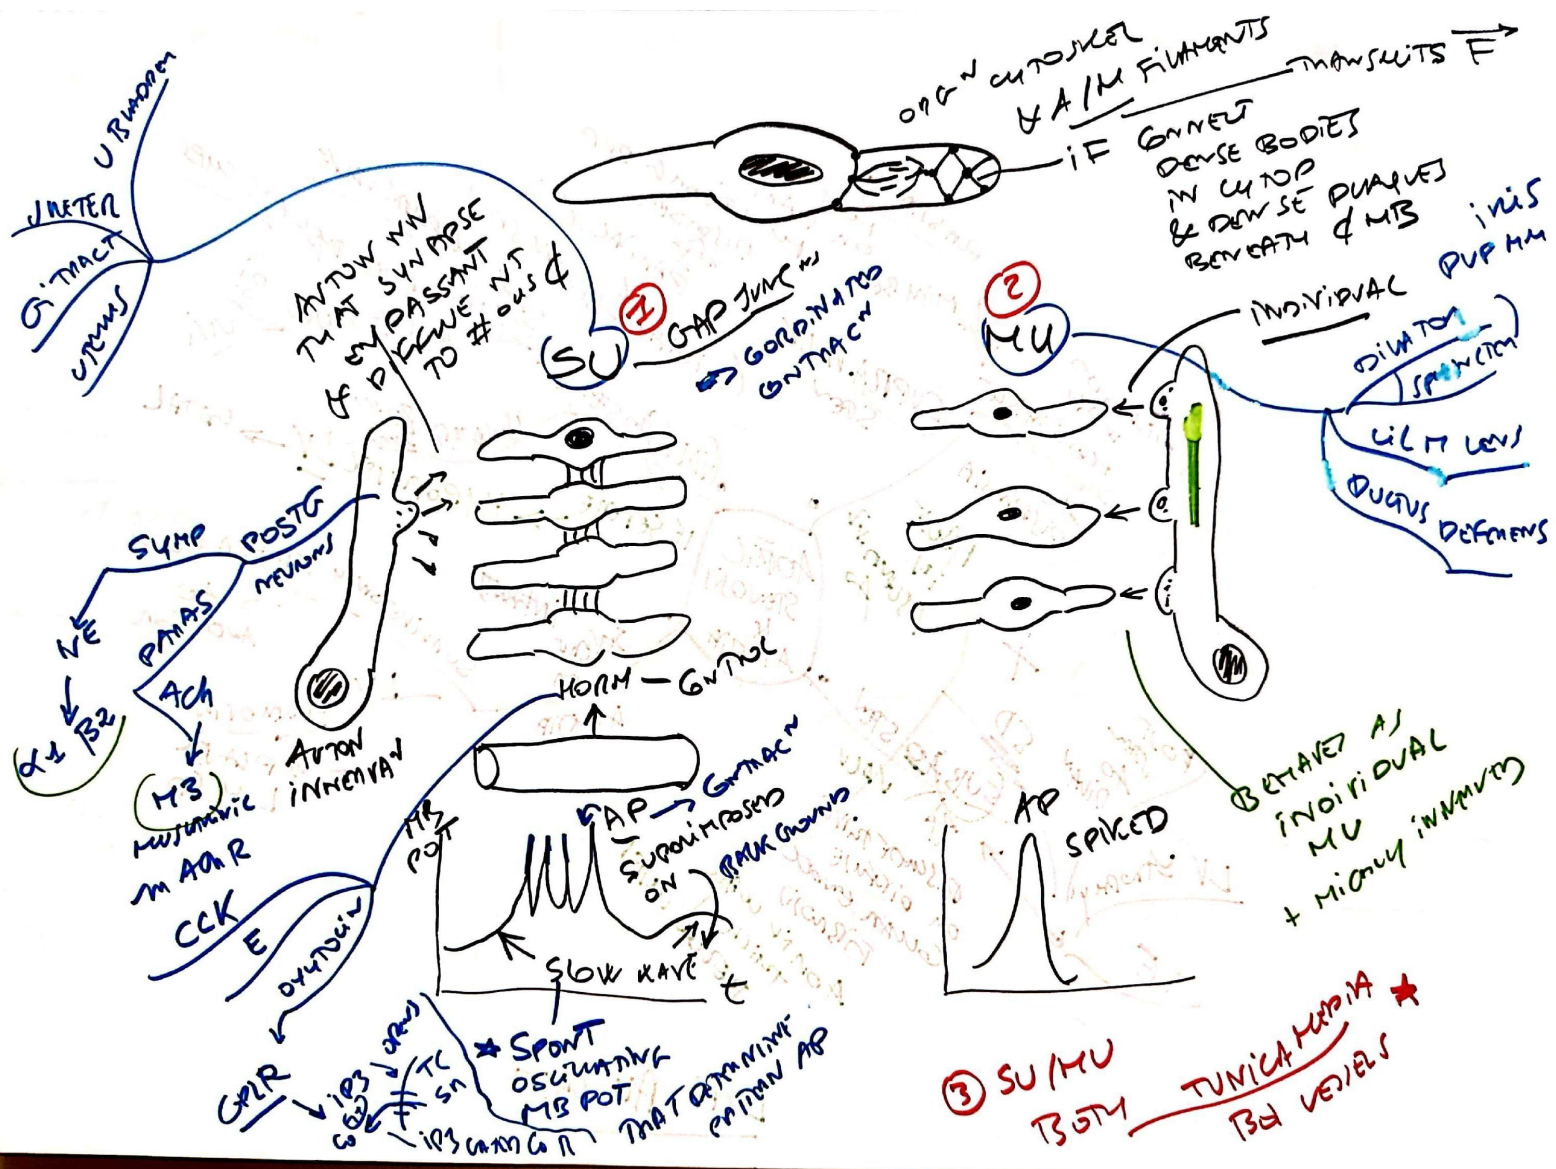 ORGᴺ CYTOSKEL
∀ A/M FILAMENTS
TRANSMITS F
iF CONNECT
DENSE BODIES
IN CYTOP
& DENSE PLAQUES
BENEATH ¢ MB
U BLADDER
URETER
Gi TRACT
UTERUS
AUTON NN
THAT SYNAPSE
EN PASSANT
& DIFFUSE NT
TO # OUS ¢
1
SU
GAP JUNCᴺˢ
→ COORDINATED
CONTRACᴺ
2
MU
INDIVIDUAL
iRiS
PUP MM
DILATOR
SPHINCTER
CiL M LENS
DUCTUS
DEFERENS
POSTG
NEURONS
SYMP
NE
α1 β2
PARAS
ACh
M3
MUSCARINIC
m AChR
AUTON
INNERVAᴺ
HORM — CONTROL
CCK
E
OXYTOCIN
GPCR
iP3
OPENS
TC
SR
iP3 GATED Ca R
MB
POT
AP → CONTRACᴺ
SUPERIMPOSED
ON
BACKGROUND
SLOW WAVE
t
★ SPONT
OSCILLATING
MB POT
THAT DETERMINE
PATTERN AP
AP
SPIKED
BEHAVES AS
INDIVIDUAL
MU
+ RICHLY INNERVTD
3 SU/MU
BOTH TUNICA MEDIA ★
Bd VESSELS